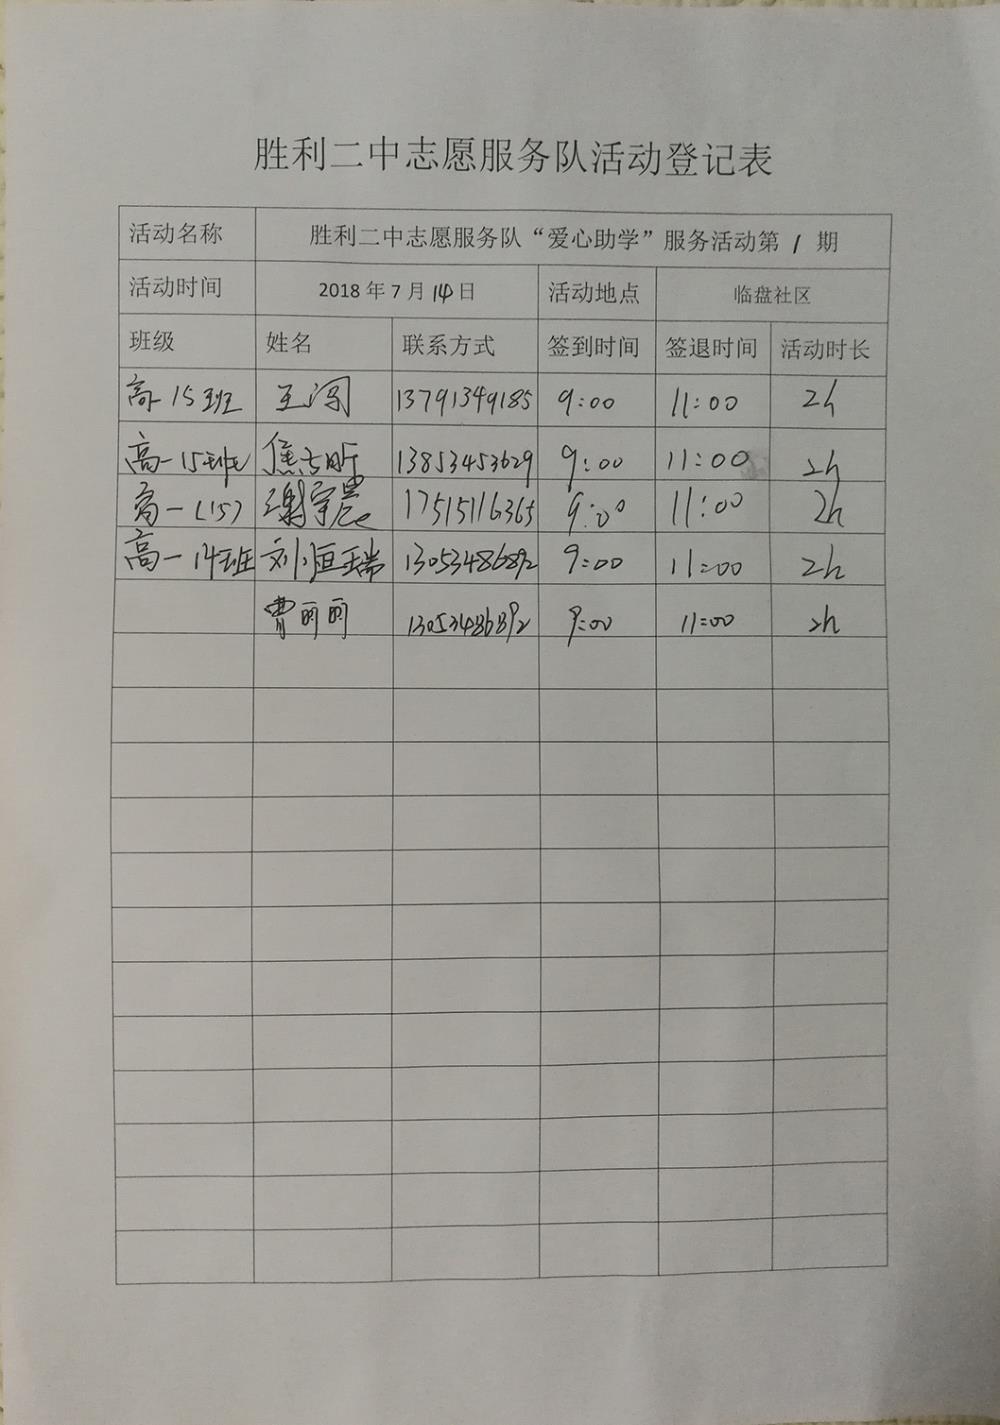 胜利二中志愿服务队活动登记表
活动名称 胜利二中志愿服务队“爱心助学”服务活动第 1 期
活动时间 2018 年 7 月 14 日 活动地点 临盘社区
班级 姓名 联系方式 签到时间 签退时间 活动时长
高一 15班 王 13791349185 9:00 11:00 2h
高一15班 焦 13853453629 9:00 11:00 2h
高一(15) 谢宇晨 17515116365 9:00 11:00 2h
高一14班 刘恒瑞 13053486892 9:00 11:00 2h
曹丽丽 13053486892 9:00 11:00 2h